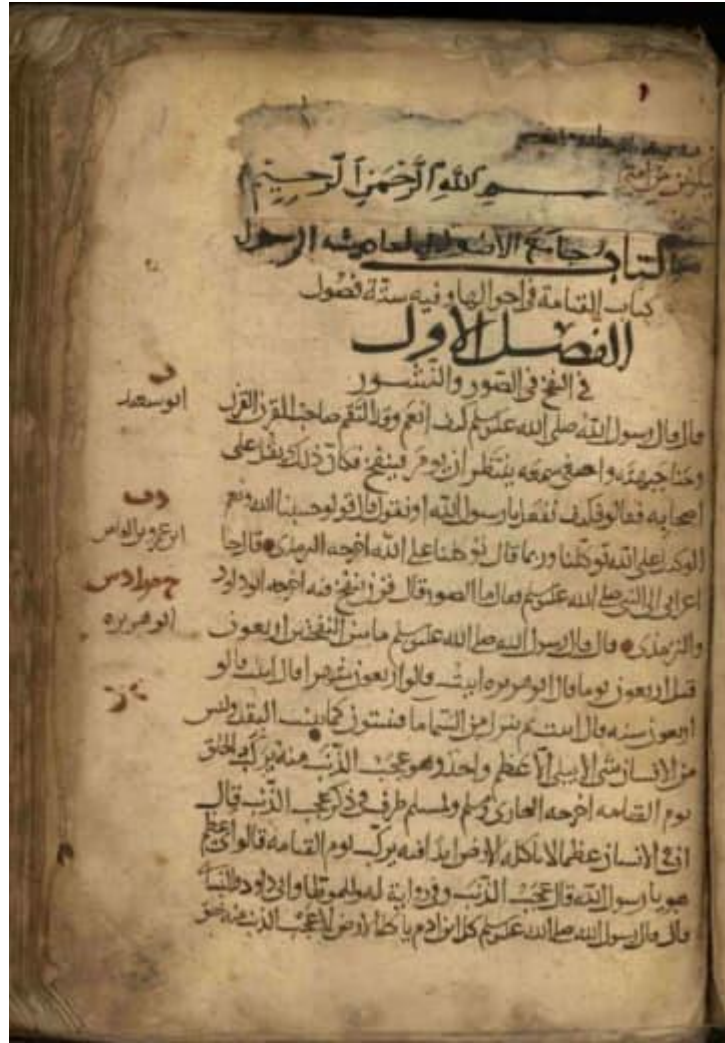 بسم الله الرحمن الرحيم
كتاب جامع الاصول في احاديث الرسول
كتاب القيامة في احوالها وفيه ستة فصول
الفصل الاول
في النفخ في الصور والنشور
ابو سعيد
قال قال رسول الله صلى الله عليه وسلم كيف انعم وقد التقم صاحب القرن القرن
وحنا جبهته واصغى سمعه ينتظر ان يومر فينفخ فكان ذلك ثقل على
اصحابه فقالوا فكيف نفعل يا رسول الله او نقول قال قولوا حسبنا الله ونعم
الوكيل على الله توكلنا وربما قال توكلنا على الله اخرجه الترمذي قال جا
ابن عمرو بن العاص
اعرابي الى النبي صلى الله عليه وسلم فقال ما الصور قال قرن ينفخ فيه اخرجه ابو داود
ابو هريره
والترمذي قال قال رسول الله صلى الله عليه وسلم ما بين النفختين اربعون
قيل اربعون يوما قال ابو هريره ابيت قالوا اربعون شهرا قال ابيت قالو
اربعون سنه قال ابيت ثم ينزل من السما ما فينبتون كما ينبت البقل وليس
من الانسان شي الا يبلى الا عظم واحد وهو عجب الذنب منه يركب الخلق
يوم القيامه اخرجه البخاري ومسلم ولمسلم طرف في ذكر عجب الذنب قال
ان في الانسان عظما لا تاكله الارض ابدا فيه يركب يوم القيامه قالوا اي عظم
هو يا رسول الله قال عجب الذنب وفي رواية له وللموطا وابي داود والنسائي
قال قال رسول الله صلى الله عليه وسلم كل ابن ادم ياكله الارض الا عجب الذنب منه خلق